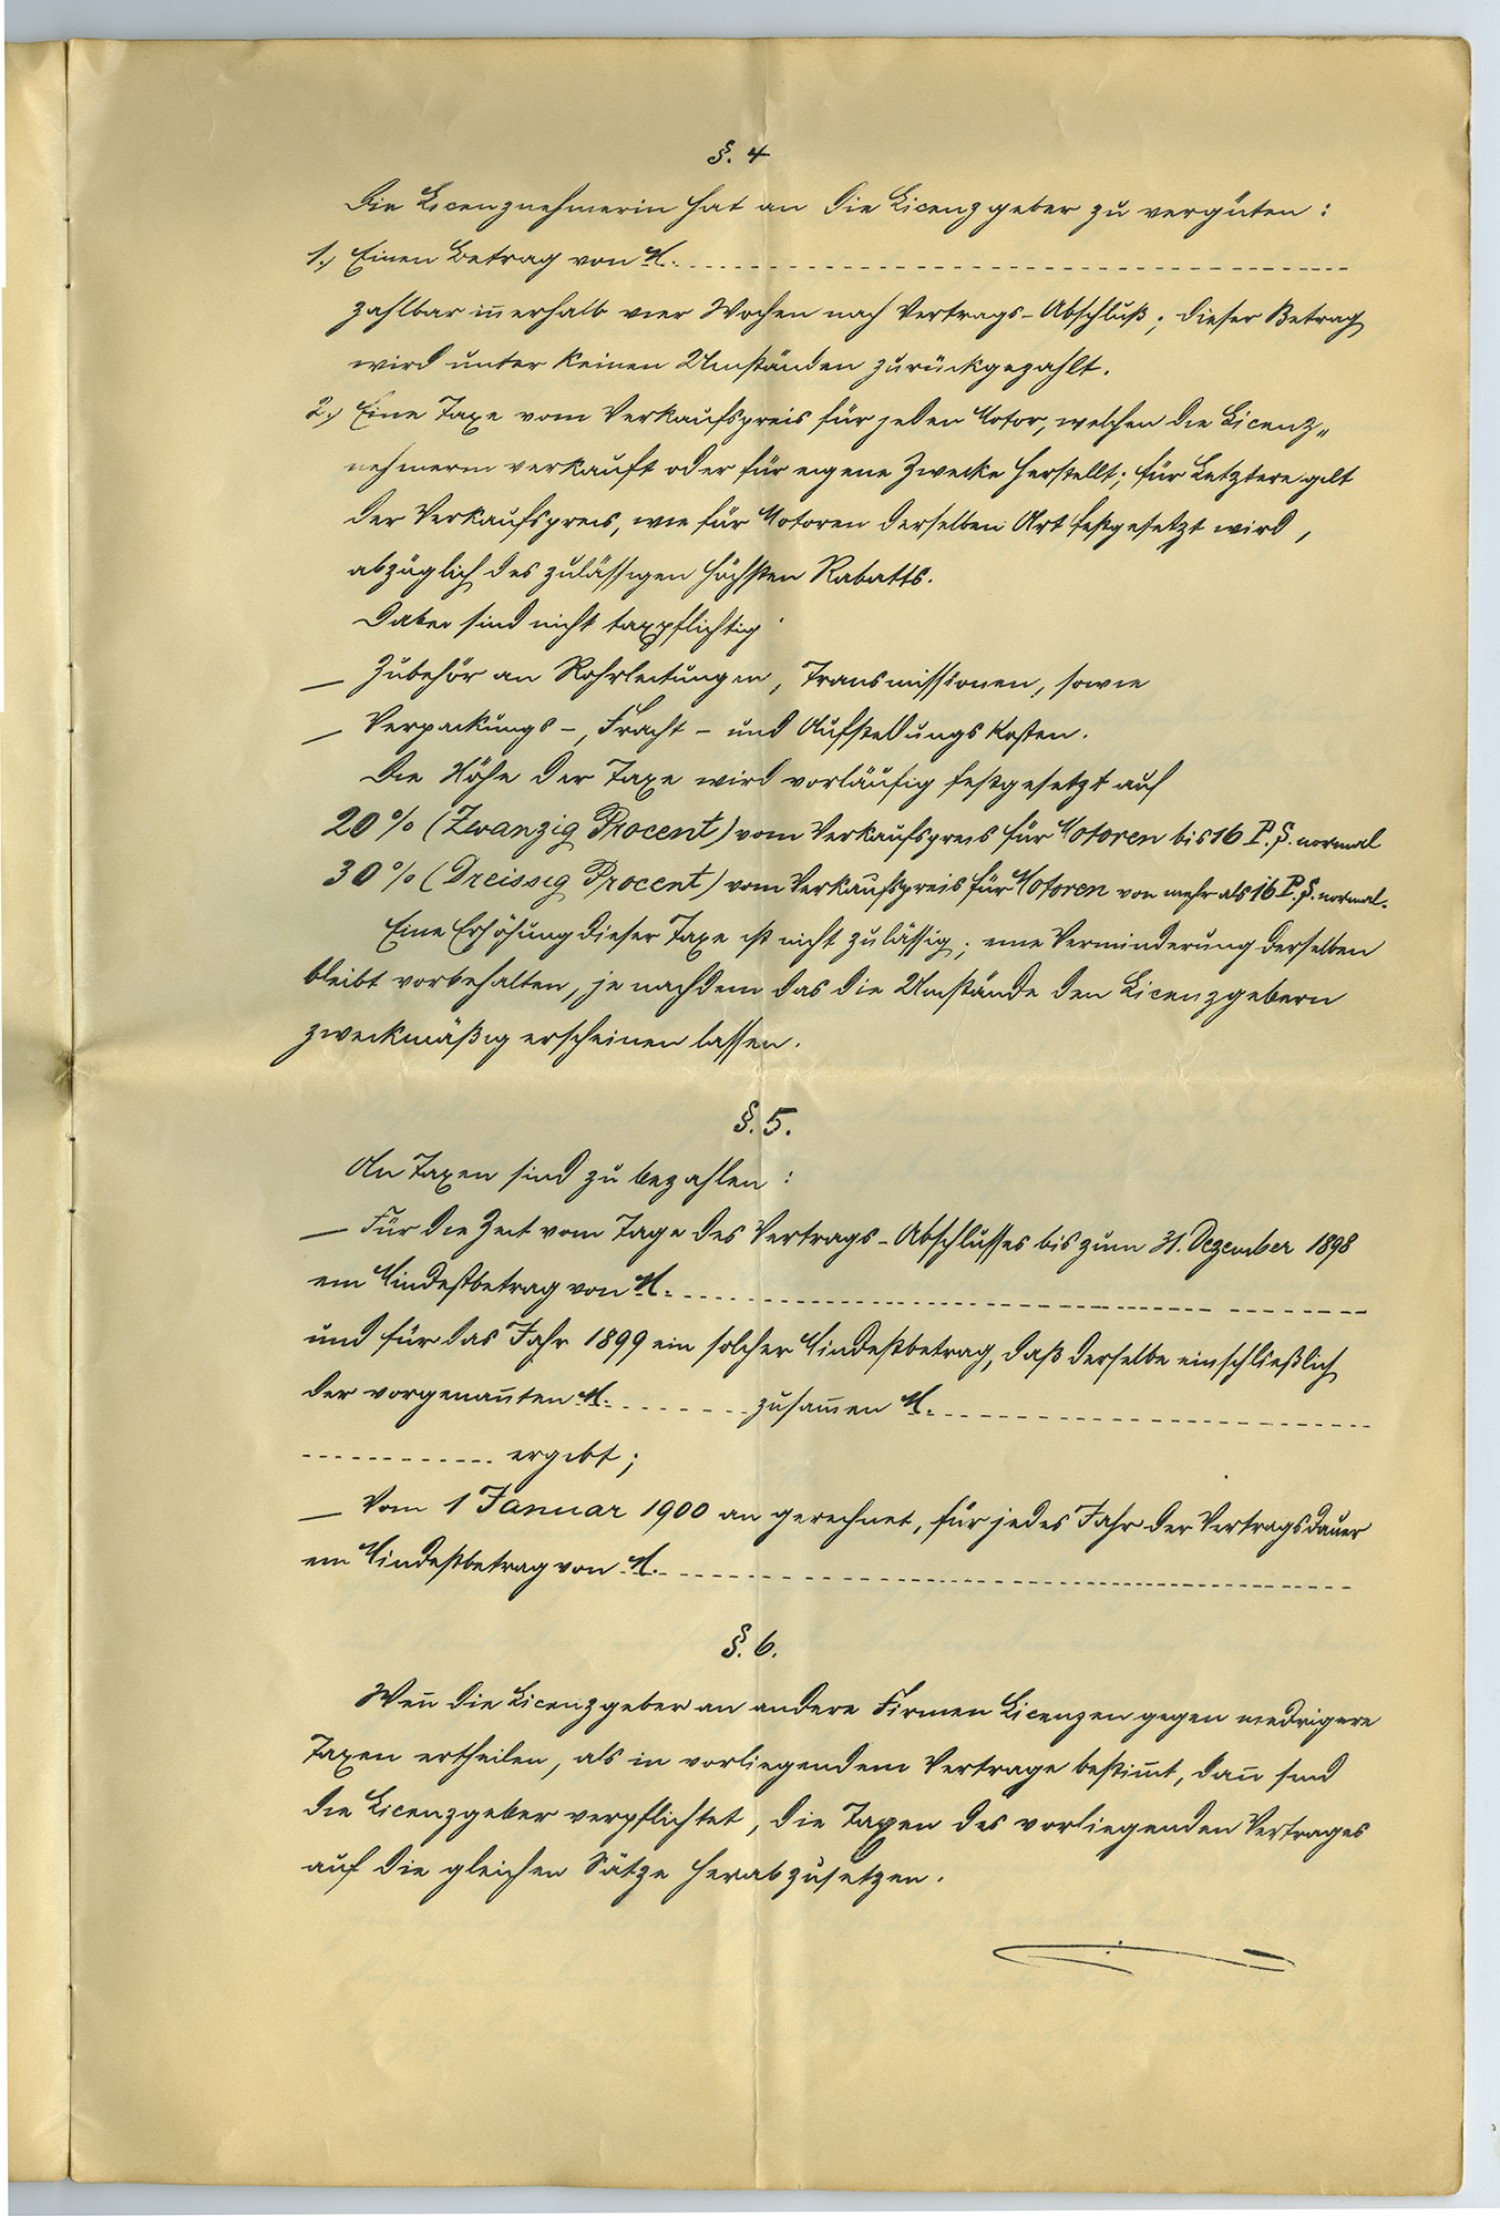 §. 4
Die Licenznehmerin hat an die Licenzgeber zu vergüten:
1.) Einen Betrag von M. ................
zahlbar in̅erhalb vier Wochen nach Vertrags-Abschluß; dieser Betrag
wird unter keinen Umständen zurückgezahlt.
2.) Eine Taxe vom Verkaufspreis für jeden Motor, welchen die Licenz„
nehmerin verkauft oder für eigene Zwecke herstellt; für Letztere gilt
der Verkaufspreis, wie für Motoren derselben Art festgesetzt wird,
abzüglich des zulässigen höchsten Rabatts.
Dabei sind nicht taxpflichtig
— Zubehör an Rohrleitungen, Transmissionen, sowie
— Verpackungs-, Fracht- und Aufstellungskosten.
Die Höhe der Taxe wird vorläufig festgesetzt auf
20% (Zwanzig Procent) vom Verkaufspreis für Motoren bis 16 P.S. normal
30% (Dreissig Procent) vom Verkaufspreis für Motoren von mehr als 16 P.S. normal.
Eine Erhöhung dieser Taxe ist nicht zulässig; eine Verminderung derselben
bleibt vorbehalten, je nachdem das die Umstände den Licenzgebern
zweckmäßig erscheinen lassen.
§. 5.
An Taxen sind zu bezahlen:
— Für die Zeit vom Tage des Vertrags-Abschlusses bis zum 31. Dezember 1898
ein Mindestbetrag von M. ................
und für das Jahr 1899 ein solcher Mindestbetrag, daß derselbe einschließlich
der vorgenan̅ten M. ........ zusam̅en M. ................
............ ergibt;
— Vom 1 Januar 1900 an gerechnet, für jedes Jahr der Vertragsdauer
ein Mindestbetrag von M. ................
§. 6.
Wen̅ die Licenzgeber an andere Firmen Licenzen gegen niedrigere
Taxen ertheilen, als in vorliegendem Vertrage bestim̅t, dan̅ sind
die Licenzgeber verpflichtet, die Taxen des vorliegenden Vertrages
auf die gleichen Sätze herabzusetzen.